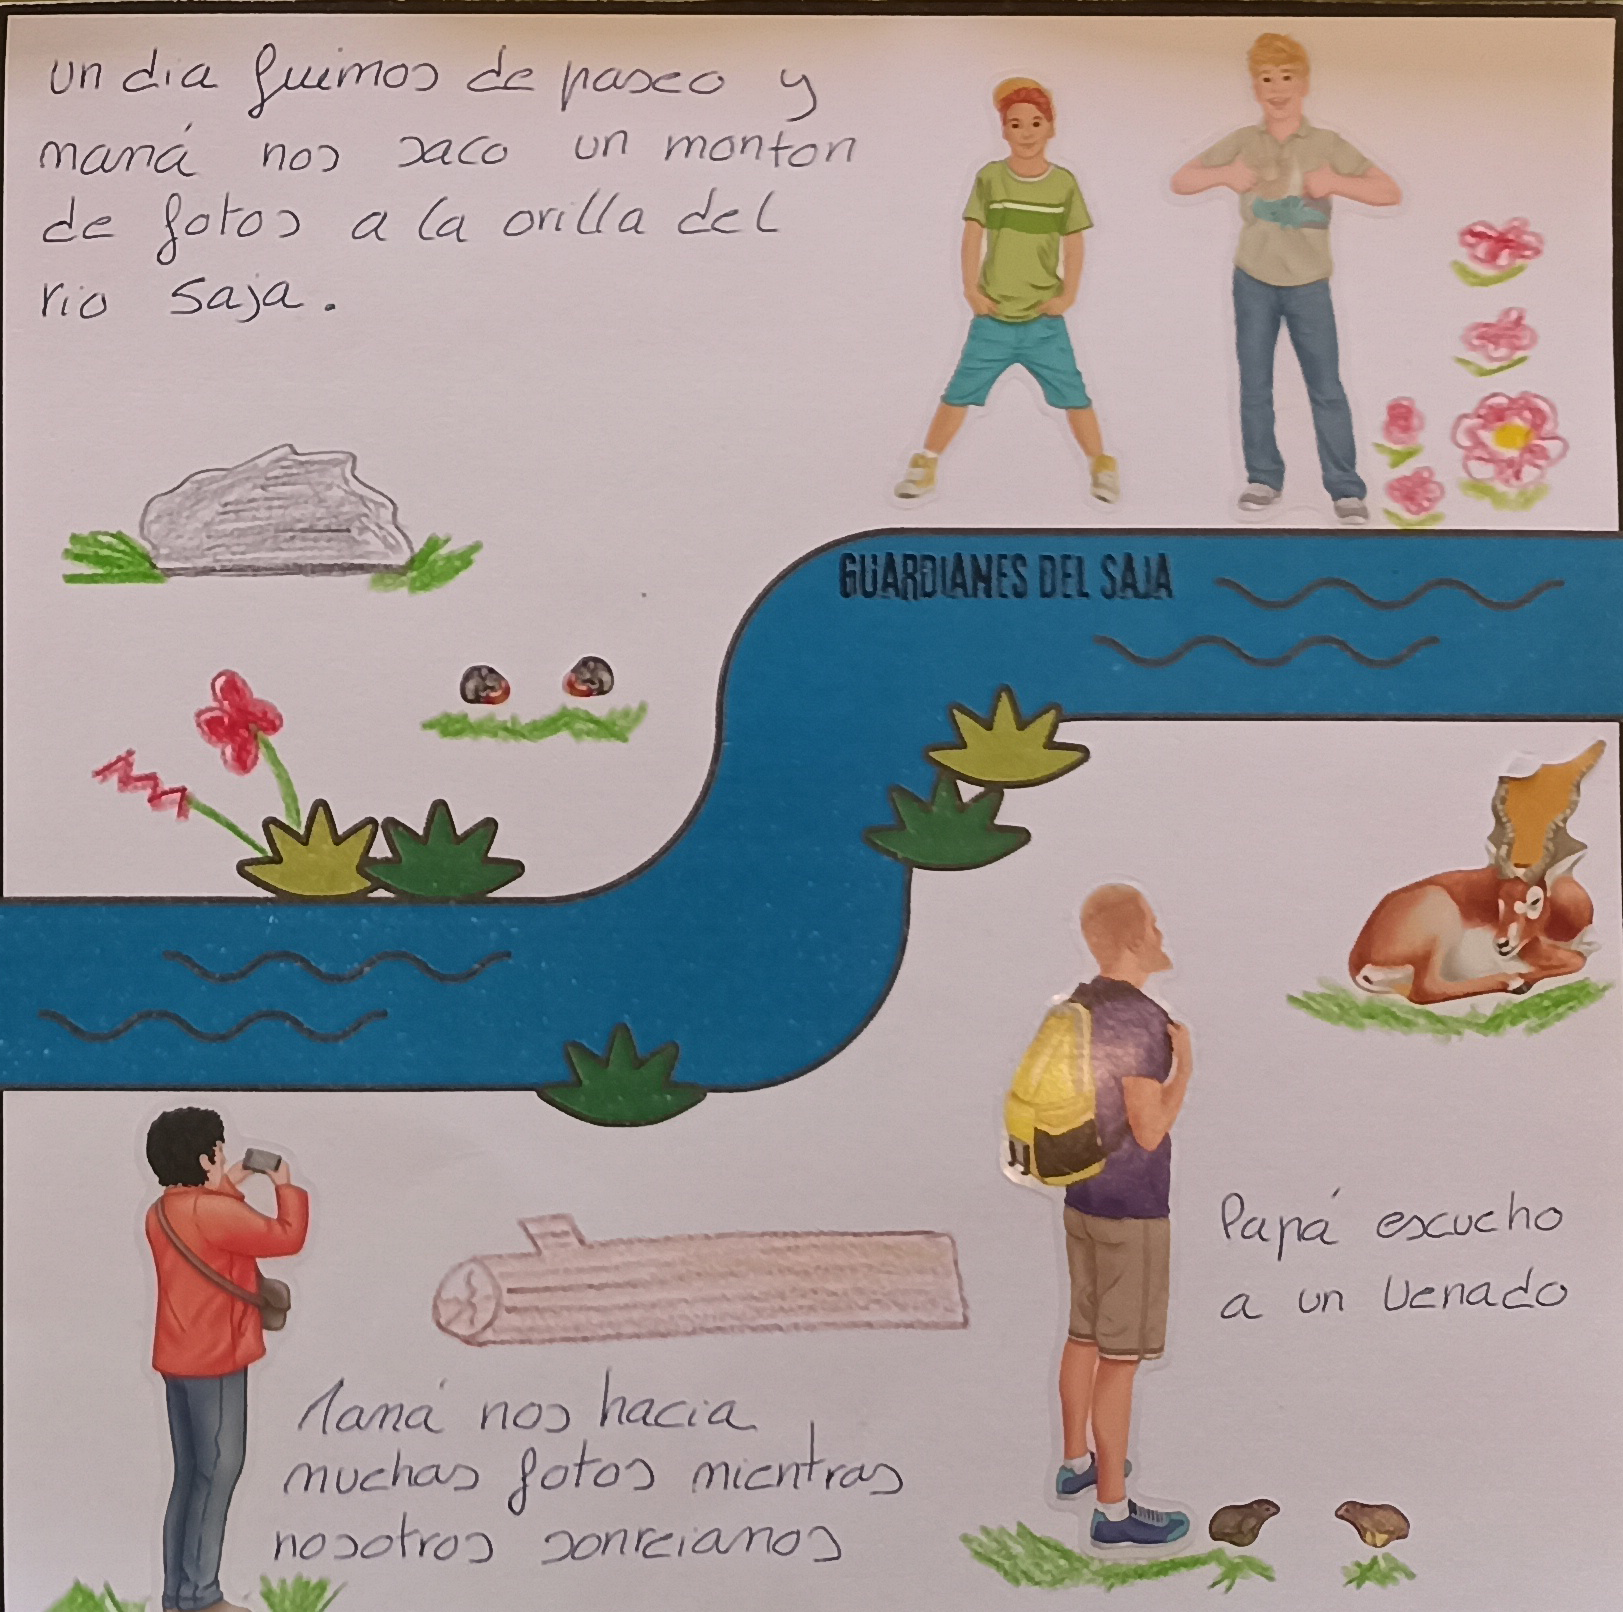 un dia fuimos de paseo y
mamá nos saco un monton
de fotos a la orilla del
rio Saja.
GUARDIANES DEL SAJA
Papá escucho
a un Venado
Mamá nos hacia
muchas fotos mientras
nosotros sonreiamos